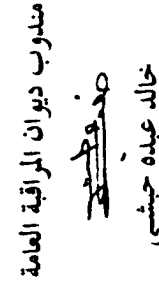 مندوب ديوان المراقبة العامة
خالد عبده حبشي